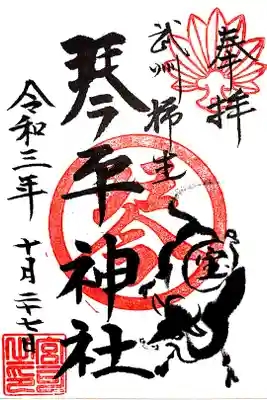 奉拝
武州 柿生
琴平神社
令和三年 十月二十七日